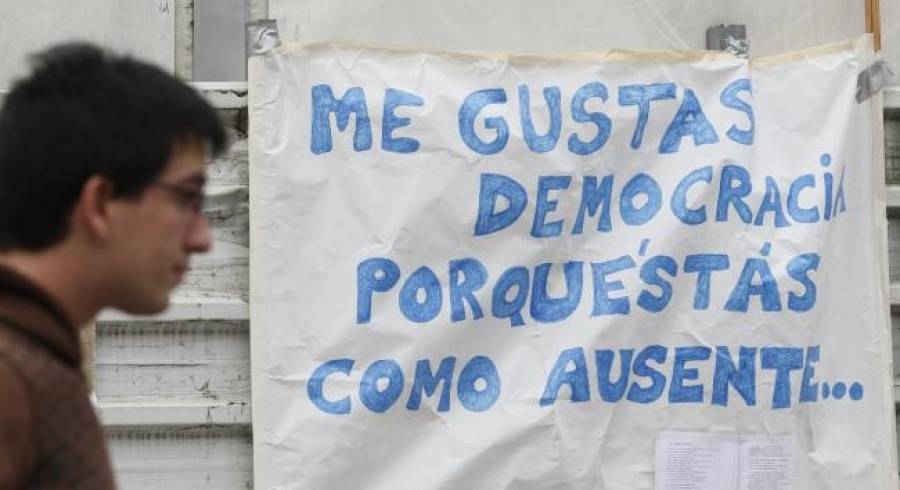 ME GUSTAS
DEMOCRACIA
PORQUE'STÁS
COMO AUSENTE...